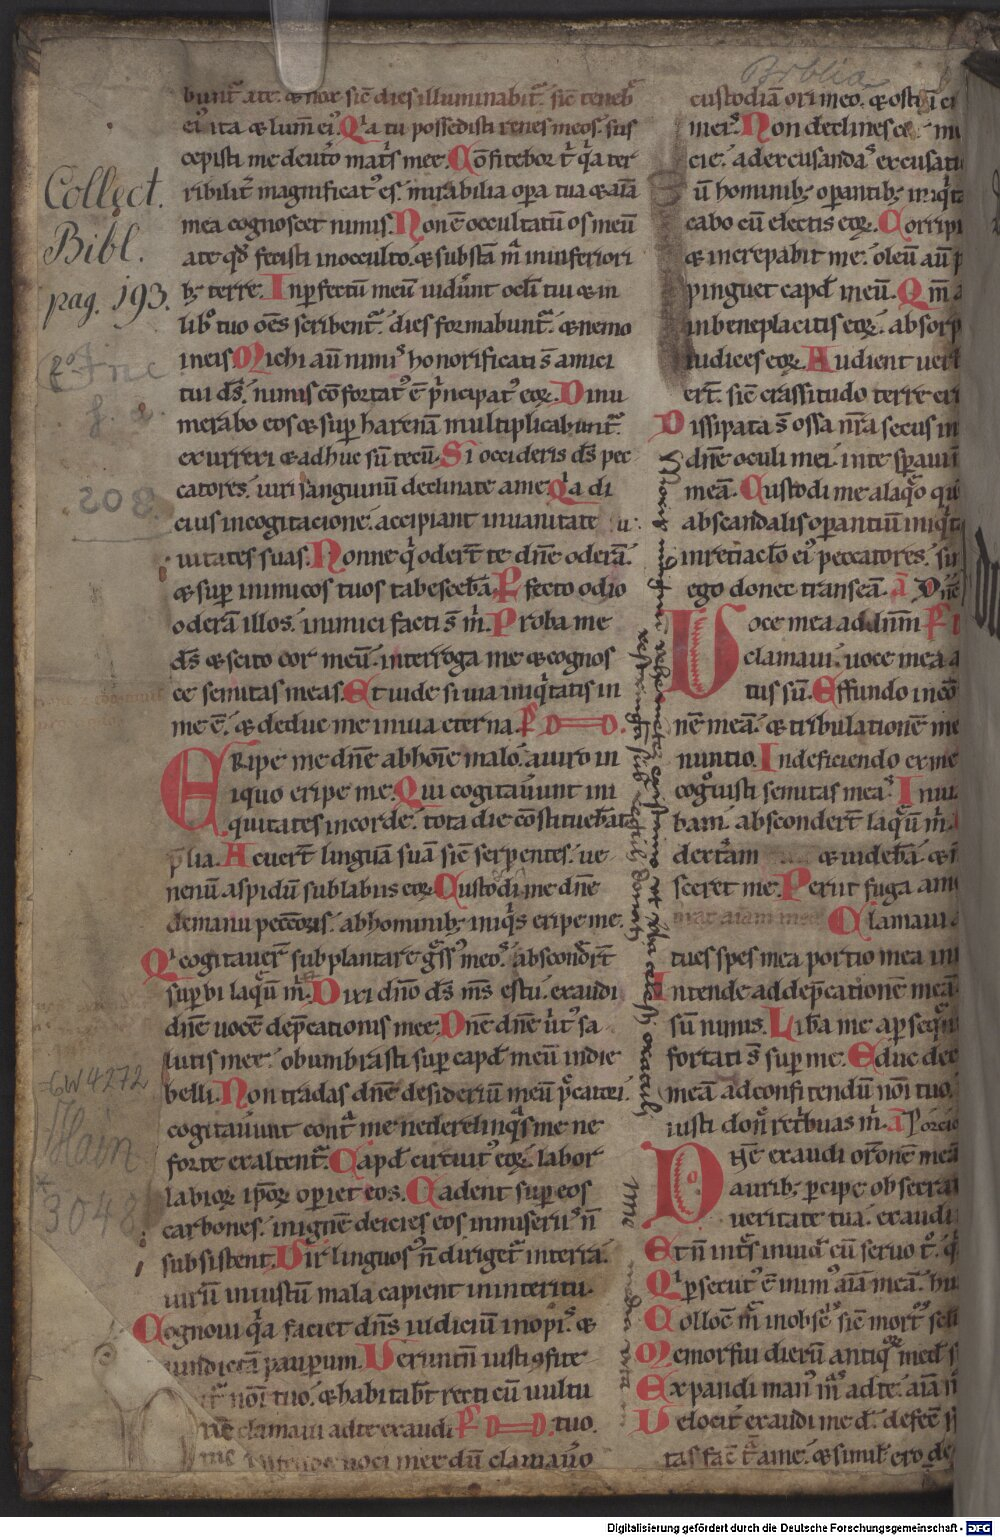 Biblia
Collect.
Bibl.
pag. 193.
2° Inc
s. a.
208.
GW 4272
Hain
* 3048
bunt᷑ a te. & nox sic̄ dies illuminabit᷑. sic̄ teneb᷑
ei᷒ ita & lum̄ ei᷒. Qͥa tu possedisti renes meos. sus
cepisti me de ut᷑o mat᷑s mee. Cōfitebor t̄ qͥa ter
ribilit᷑ magnificat᷒ es. mirabilia oꝑa tua & aīa
mea cognoscet nimis. Non ē occultatū os meū
a te qd̄ fecisti in occulto. & substā m̄ in inferiori
bꝫ terre. Inꝑfectū meū uider̄unt ocl̄i tui & in
lib᷑o tuo om̄s scribent᷑. dies formabunt᷑. & nemo
in eis Michi aū nimi᷒ honorificati s̄ amici
tui ds̄. nimis cōfortat᷒ ē pͥncipat᷒ eoꝝ. Dinu
merabo eos & suꝑ harenā multiplicabunt᷑.
exurrexi & adhuc sū tecū. Si occideris ds̄ pec
catores. uiri sanguinū declinate a me. Qͥa di
citis in cogitacione. accipiant in uanitate
uitates suas. Nonne qͥ oder̄t te dn̄e oderā.
& suꝑ inimicos tuos tabescebā. Ꝑfecto odio
oderā illos. inimici facti s̄ m̄. Proba me
ds̄ & scito cor meū. interroga me & cognos
ce semitas meas. Et uide si uia iniqͥtatis in
me ē. & deduc me in uia eterna.
Eripe me dn̄e ab hoīe malo. a uiro in
iquo eripe me. Qui cogitauer̄unt ini
quitates in corde. tota die cōstituebāt
p̄lia. Acuer̄t linguā suā sic̄ serpentes. ue
nenū aspidū sub labiis eoꝝ Custodi me dn̄e
de manu pecc̄oris. ab hominibꝫ iniqͥs eripe me.
Qͥ cogitauer̄ subplantare g᷑ss᷒ meo᷒. abscond᷑rt̄
suꝑbi laqͣū m̄. Dixi dn̄o ds̄ ms̄ es tu. exaudi
dn̄e uocē dep̄cationis mee. Dn̄e dn̄e uͥrt᷒ sa
lutis mee. obumbrasti suꝑ capḋ meū in die
belli. Non tradas dn̄e desideriū meū pͨcatori.
cogitauer̄unt cont᷑ me ne derelinqͣs me ne
forte exaltent᷑. Capḋ circuit᷒ eoꝝ. labor
labioꝝ ip̄oꝝ oꝑiet eos. Cadent suꝑ eos
carbones. in ignē deicies eos in miserii᷒ n̄
subsistent. Vir linguos᷒ n̄ diriget᷑ in terra.
uirū iniustū mala capient in interitu.
Cognoui qͥa faciet dn̄s iudiciū inopi᷒. &
uindictā pauꝑum. Veruntn̄ iusti ꝯfite
nōi tuo. & habitab̄t recti cū uultu
tuo.
clamaui ad te exaudi
uoci mee dū clamauero
custodiā ori meo. & ostiū ci
meis᷒. Non declines
cie. ad excusandas excusati
ū hominibꝫ oꝑantibꝫ iniqͥta
cabo cū electis eoꝝ. Corripi
& increpabit me. oleū aū p
pinguet capḋ meū. Qm̄ a
in beneplacitis eoꝝ. absorp
iudices eoꝝ. Audient uer
ert̄. sic̄ crassitudo terre er
Dissipata s̄ ossa nr̄a secus in
dn̄e oculi mei. in te sꝑaui
meā. Custodi me a laqͣo qu
ab scandalis oꝑantiū iniqͥta
in retiaclo ei᷒ peccatores. su
ego donec transeā. Dn̄e
Voce mea ad dn̄m
clamaui. uoce mea a
tus sū. Effundo in cō
nē meā. & tribulationē me
nuntio. In deficiendo ex me
cogͦuisti semitas mea᷒. In ui
bam. absconder̄t laqͣū m̄.
dextram & uidebā. & n
sceret me. Periit fuga a me
Clamaui
tu es spes mea portio mea in
Intende ad dep̄cationē meā
sū nimis. Libā me a ꝑseqͣn
fortati s̄ suꝑ me. Educ de c
meā ad confitendū nōi tuo.
iusti don̄ ret᷑buas m̄.
Dn̄e exaudi or̄onē meā
auribꝫ ꝑcipe obsecra
ueritate tua. exaudi
Et n̄ int᷑s in iud᷑ cū seruo t᷒. qͥ
Qͥ ꝑsecut᷒ ē inim᷒ aīā meā. hu
Collocē m̄ in obsc᷒s sic̄ mort᷒s
Memor fui dierū antiqͦꝝ. med᷑
Expandi man᷒ m᷒s ad te. aīā
Velocit᷑ exaudi me d᷑. defec̄
tas fac̄ t᷑ a me. & simil᷑ ero de
Digitalisierung gefördert durch die Deutsche Forschungsgemeinschaft - DFG